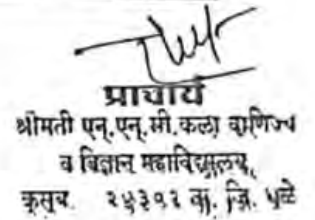 प्राचार्य
श्रीमती एन्.एन्.सी.कला वाणिज्य
व विज्ञान महाविद्यालय,
कुसुंबा. २४३०२ वा. जि. धुळे